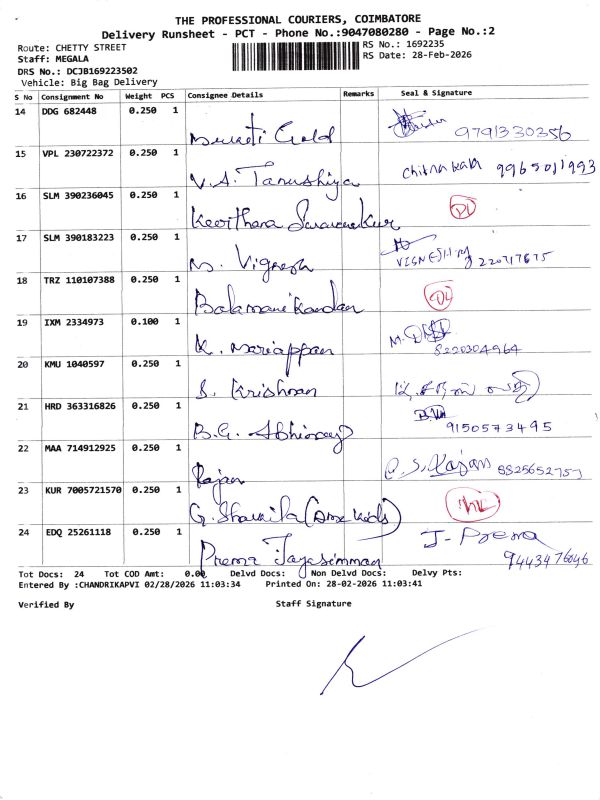 THE PROFESSIONAL COURIERS, COIMBATORE
Delivery Runsheet - PCT - Phone No.:9047080280 - Page No.:2
Route: CHETTY STREET
RS No.: 1692235
Staff: MEGALA
RS Date: 28-Feb-2026
DRS No.: DCJB169223502
Vehicle: Big Bag Delivery
S No Consignment No Weight PCS Consignee Details Remarks Seal & Signature
14 DDG 682448 0.250 1 Gold 9791330356
15 VPL 230722372 0.250 1 V.A. Tanushiya Chitrakala 9965011993
16 SLM 390236045 0.250 1 Keerthana
17 SLM 390183223 0.250 1 M. Vignesh VIGNESH M
18 TRZ 110107388 0.250 1 Balamanikandan
19 IXM 2334973 0.100 1 K. Mariappan 8220304964
20 KMU 1040597 0.250 1 S. Krishnan
21 HRD 363316826 0.250 1 B.G. Abhinay 9150573495
22 MAA 714912925 0.250 1 Rajan Rajan
23 KUR 7005721570 0.250 1 G. Sharmila
24 EDQ 25261118 0.250 1 Prema Jayasimman J- Prema 9443476046
Tot Docs: 24 Tot COD Amt: 0.00 Delvd Docs: Non Delvd Docs: Delvy Pts:
Entered By :CHANDRIKAPVI 02/28/2026 11:03:34 Printed On: 28-02-2026 11:03:41
Verified By Staff Signature